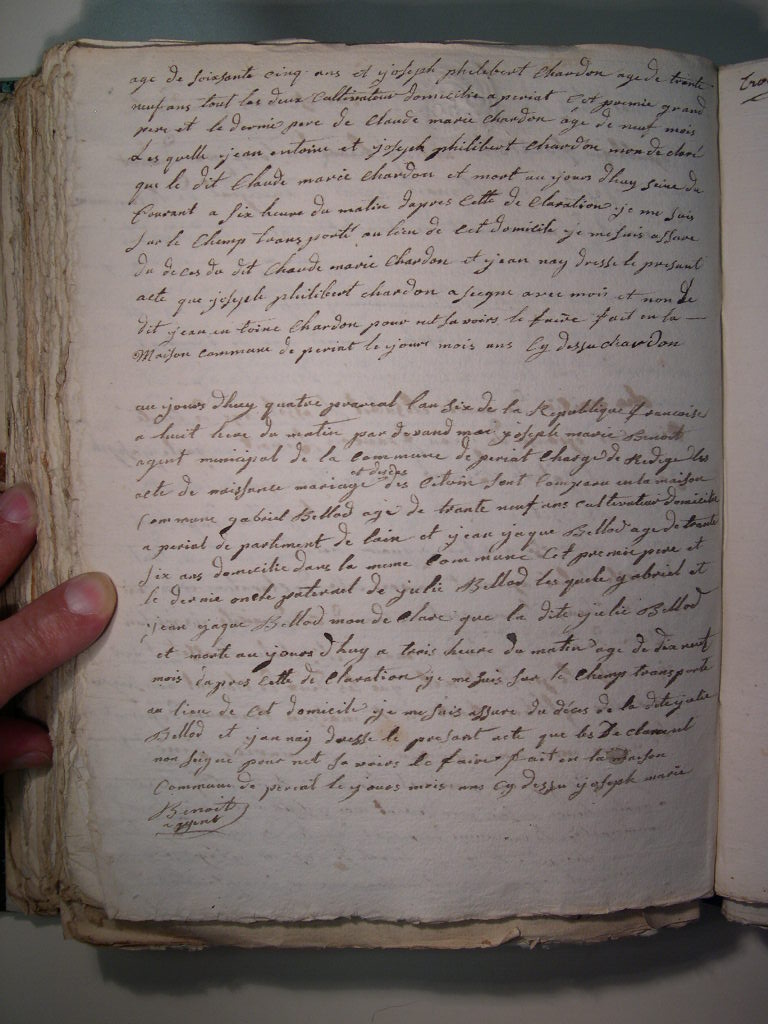 age de soixante cinq ans et yoseph philibert Chardon age de trante
neuf ans tout les deux Cultivateur domicilie a periat Cet premie grand
pere et le dernie pere de Claude marie Chardon age de neuf mois
Les quelle yean entoine et yoseph philibert Chardon mon de claré
que le dit Claude marie Chardon et mort au yours dhuy seise du
Courant a six heure du matin dapres Cette de Claration je me suis
sur le Chemp transporté au lieu de Cet domicile je me suis assure
du deces du dit Chaude marie Chardon et yean nay dresse le presant
acte que yoseph philibert chardon a siegne avec mois et non le
dit yean en toine Chardon pour net savoirs le faire fait en la
Maison Commune de periat le yours mois ans Cy dessu chardon
au yours dhuy quatre prareal lan six de la Republique francaise
a huit heure du matin par devand moi yoseph marie Benoit
agent municipal de la Commune de periat Charge de Redige les
acte de naissance mariage et deces des Citoin sont Comparu en la maison
Commune gabriel Bellod age de trante neuf ans cultivateur domicilie
a periat de partement de lain et yean yaque Bellod age de trante
six ans domicilie dans la meme Commune Cet premie pere et
le dernie oncle paternel de julie Bellod les quele gabriel et
yean yaque Bellod mon de Clare que la dite yulie Bellod
et morte au yours dhuy a trois heure du matin age de dix neuf
mois dapres Cette de Claration je me suis sur le Chemp transporte
au lieu de Cet domicile je me suis assure du déces de la dite yulie
Bellod et yan nay dresse le presant acte que les De clarant
non siegné pour net sa voirs le faire fait en la maison
Commune de periat le yours mois ans Cy dessu yoseph marie
Benoit
agent